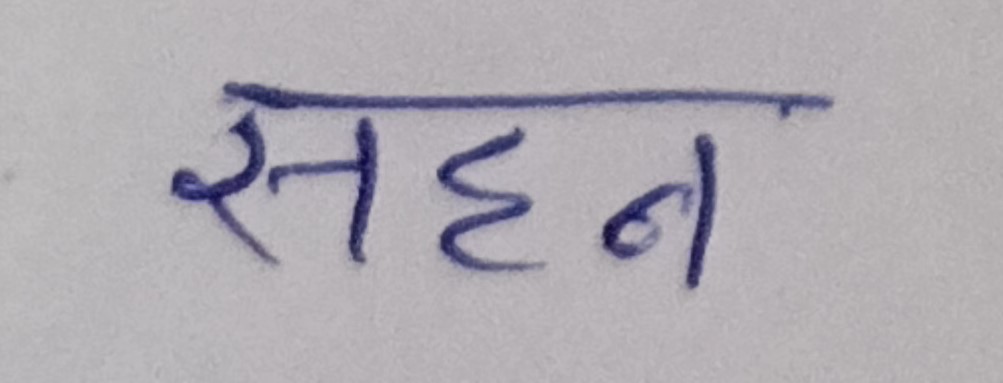 सहन